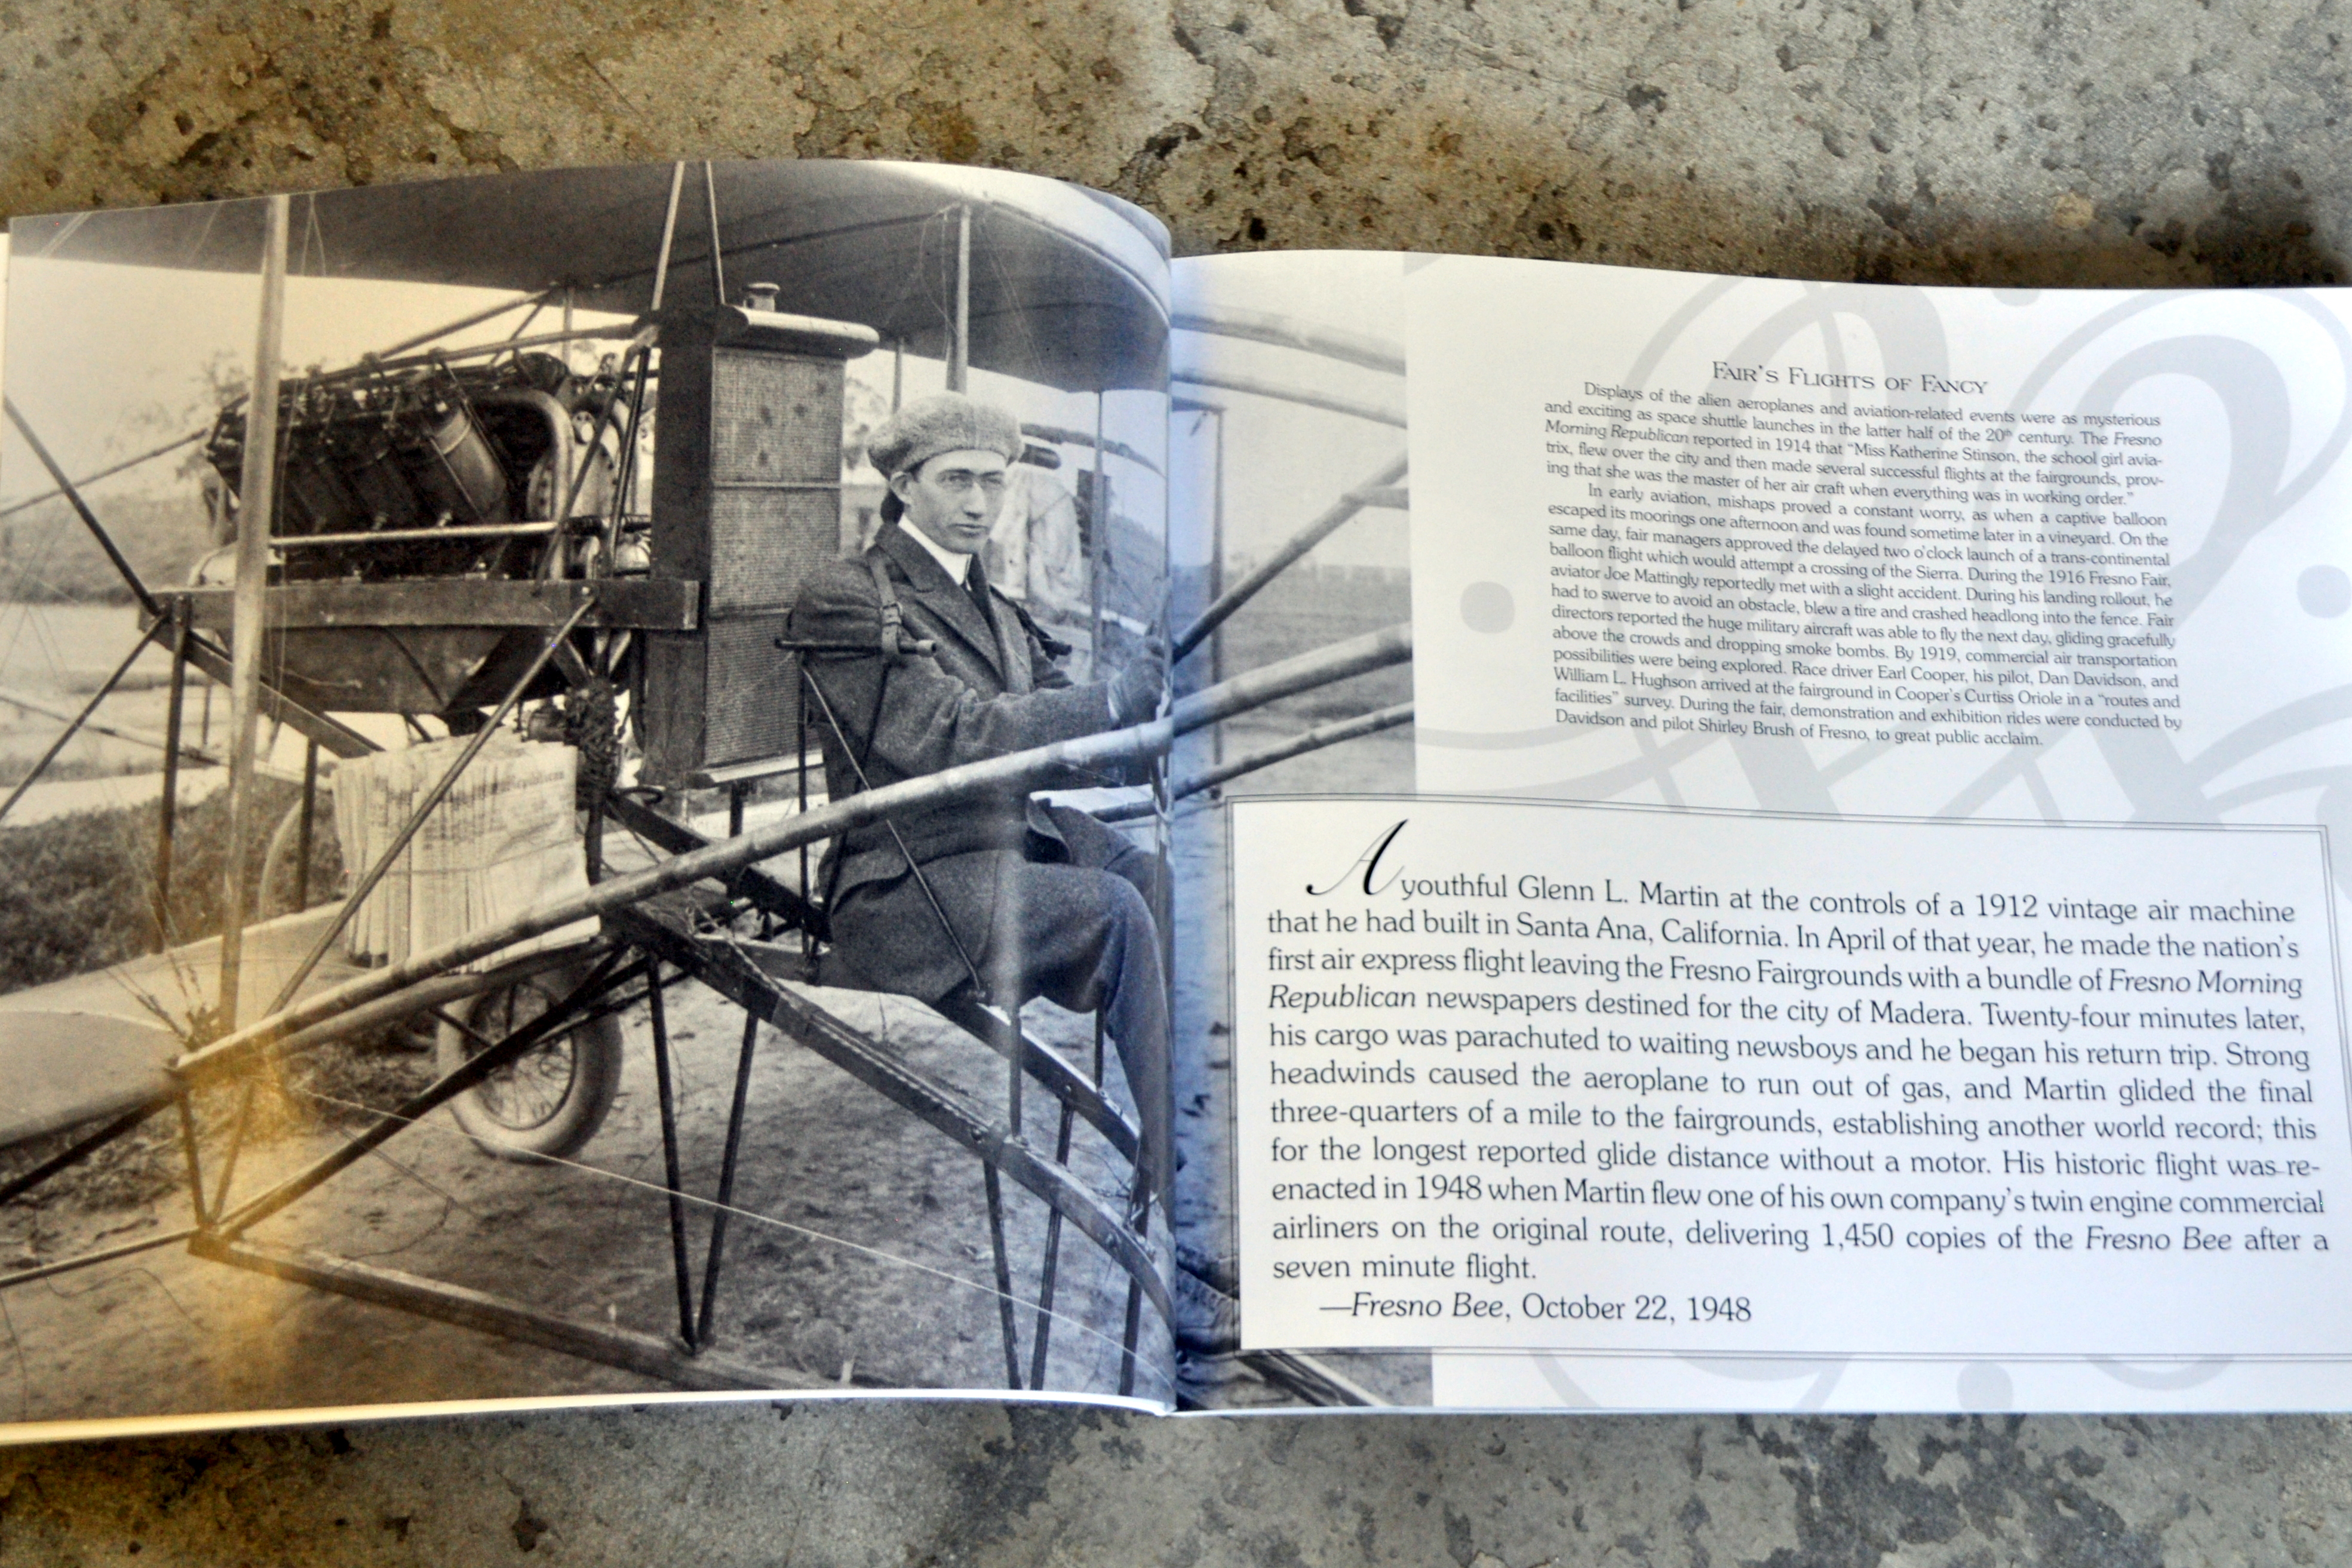 FAIR'S FLIGHTS OF FANCY
Displays of the alien aeroplanes and aviation-related events were as mysterious
and exciting as space shuttle launches in the latter half of the 20th century. The Fresno
Morning Republican reported in 1914 that "Miss Katherine Stinson, the school girl avia-
trix, flew over the city and then made several successful flights at the fairgrounds, prov-
ing that she was the master of her air craft when everything was in working order."
In early aviation, mishaps proved a constant worry, as when a captive balloon
escaped its moorings one afternoon and was found sometime later in a vineyard. On the
same day, fair managers approved the delayed two o'clock launch of a trans-continental
balloon flight which would attempt a crossing of the Sierra. During the 1916 Fresno Fair,
aviator Joe Mattingly reportedly met with a slight accident. During his landing rollout, he
had to swerve to avoid an obstacle, blew a tire and crashed headlong into the fence. Fair
directors reported the huge military aircraft was able to fly the next day, gliding gracefully
above the crowds and dropping smoke bombs. By 1919, commercial air transportation
possibilities were being explored. Race driver Earl Cooper, his pilot, Dan Davidson, and
William L. Hughson arrived at the fairground in Cooper's Curtiss Oriole in a "routes and
facilities" survey. During the fair, demonstration and exhibition rides were conducted by
Davidson and pilot Shirley Brush of Fresno, to great public acclaim.
A youthful Glenn L. Martin at the controls of a 1912 vintage air machine
that he had built in Santa Ana, California. In April of that year, he made the nation's
first air express flight leaving the Fresno Fairgrounds with a bundle of Fresno Morning
Republican newspapers destined for the city of Madera. Twenty-four minutes later,
his cargo was parachuted to waiting newsboys and he began his return trip. Strong
headwinds caused the aeroplane to run out of gas, and Martin glided the final
three-quarters of a mile to the fairgrounds, establishing another world record; this
for the longest reported glide distance without a motor. His historic flight was re-
enacted in 1948 when Martin flew one of his own company's twin engine commercial
airliners on the original route, delivering 1,450 copies of the Fresno Bee after a
seven minute flight.
—Fresno Bee, October 22, 1948